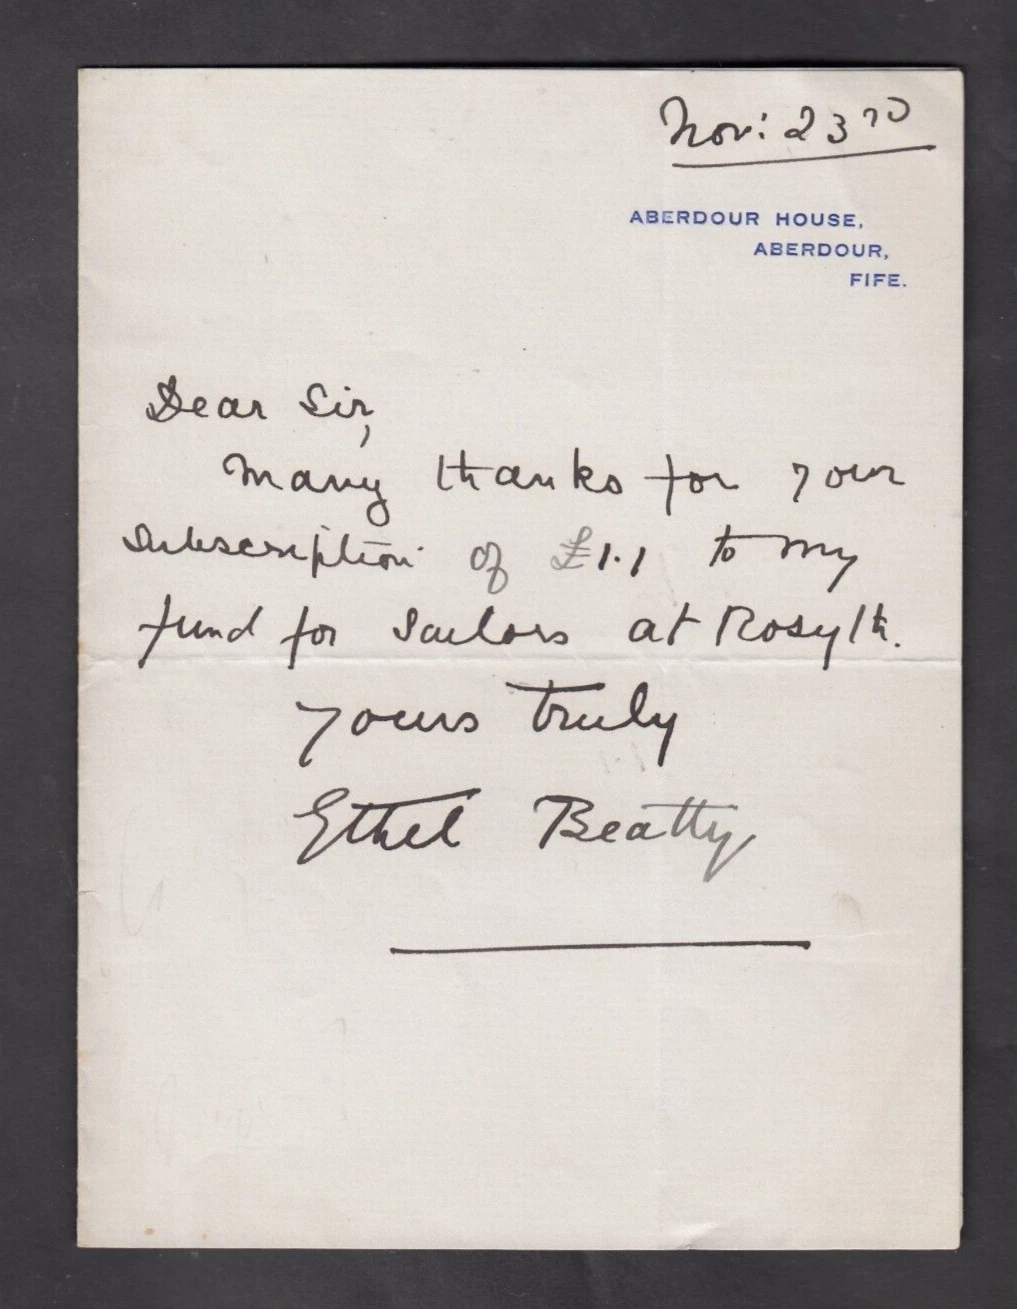 Nov: 23rd
ABERDOUR HOUSE,
ABERDOUR,
FIFE.
Dear Sir,
Many thanks for your
subscription of £1.1 to my
fund for Sailors at Rosyth.
Yours truly
Ethel Beatty